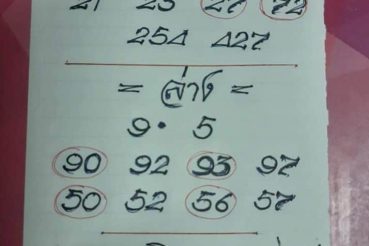 21 23 27 72
254 427
= ล่าง =
9 · 5
90 92 93 97
50 52 56 57